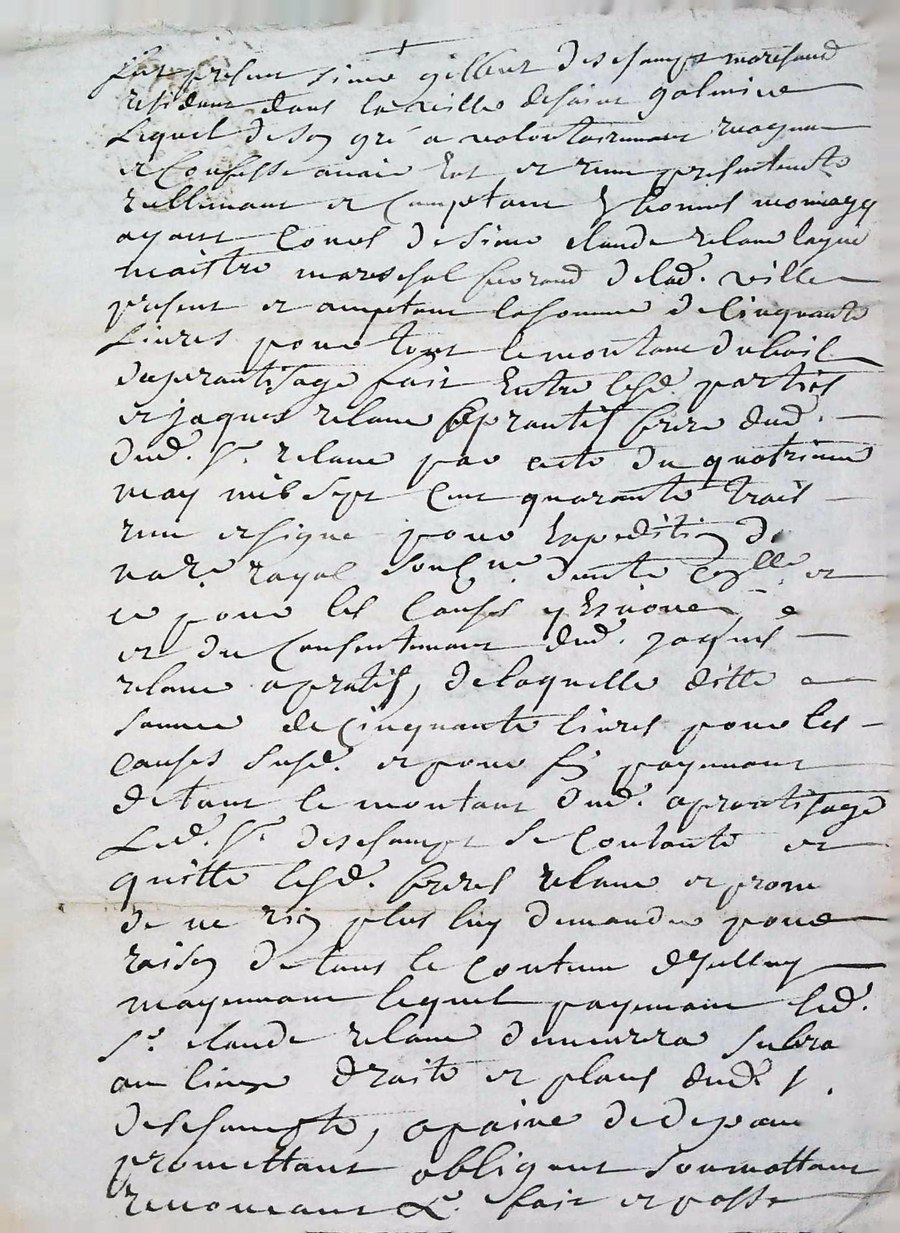 fut présent sieur gilbert deschamps mareschal
résidant dans la ville de saint galmier
lequel de son gré a volontairement recognu
et confessé avoir eu et receu présentement
réellement et comptant en bonnes monnoyes
ayant cours de sieur claude relave
maistre mareschal ferrand de lad. ville
présent et acceptant la somme de cinquante
livres pour tout le montant du bail
d'aprantisage fait entre lesd. parties
et jaques relave aprantif frere dud.
dud. Sr. relave par acte du quatrieme
may mil sept cent quarante trois
receu et signé pour expédition de
note. royal soub.né deuite et
ce pour les causes y
et du consentement dud. jaques
relave apratif, de laquelle ditte
somme de cinquante livres pour les
causes susd. et pour fin payement
de tout le montant dud. aprantissage
Led. Sr. deschamps se contante et
quitte lesd. freres relave et prome
de ne rien plus luy demander pour
raison de tout le contenu
moyennant lequel payement led.
Sr. claude relave demeurra subro
au lieux droits et place dud. S.
deschampts, a paine de depam
promettant obligeant soumettant
renonceant &. fait et passé